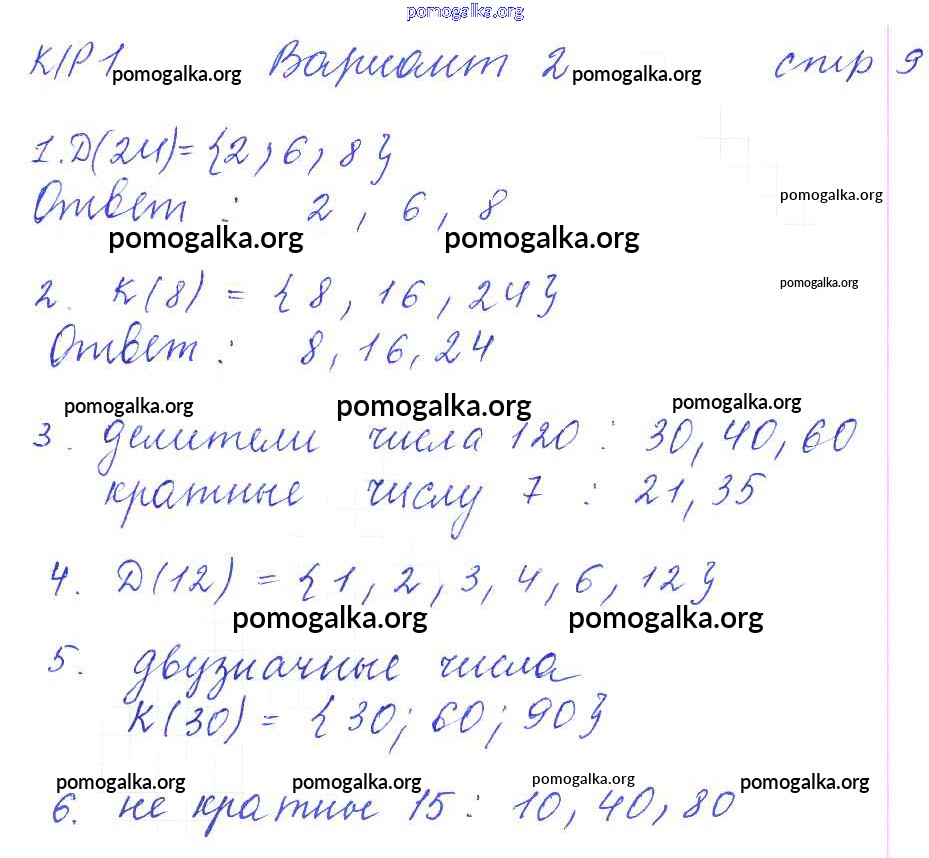 pomogalka.org
К/Р 1 pomogalka.org Вариант 2 pomogalka.org стр 9
1. Д(24)= {2, 6, 8}
pomogalka.org
Ответ : 2, 6, 8
pomogalka.org pomogalka.org
2. К(8) = {8, 16, 24}
pomogalka.org
Ответ : 8, 16, 24
pomogalka.org pomogalka.org pomogalka.org
3. делители числа 120 : 30, 40, 60
кратные числу 7 : 21, 35
4. Д(12) = {1, 2, 3, 4, 6, 12}
pomogalka.org pomogalka.org
5. двузначные числа
К(30) = {30; 60; 90}
pomogalka.org pomogalka.org pomogalka.org pomogalka.org
6. не кратные 15 : 10, 40, 80